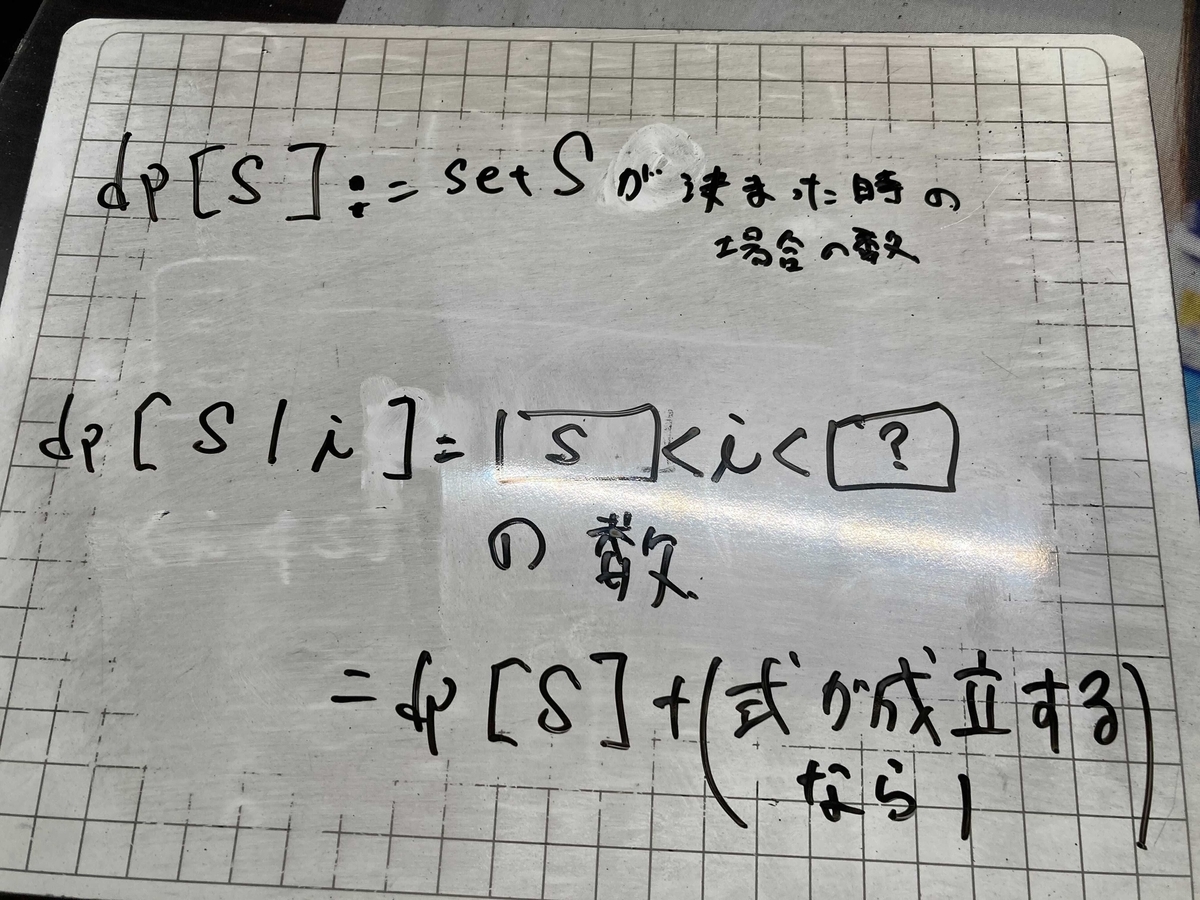 dp[S] := set S が 決まった時の
場合の数
dp[S|i] = S < i < ?
の数
= dp[S] + (式が成立する
なら1)